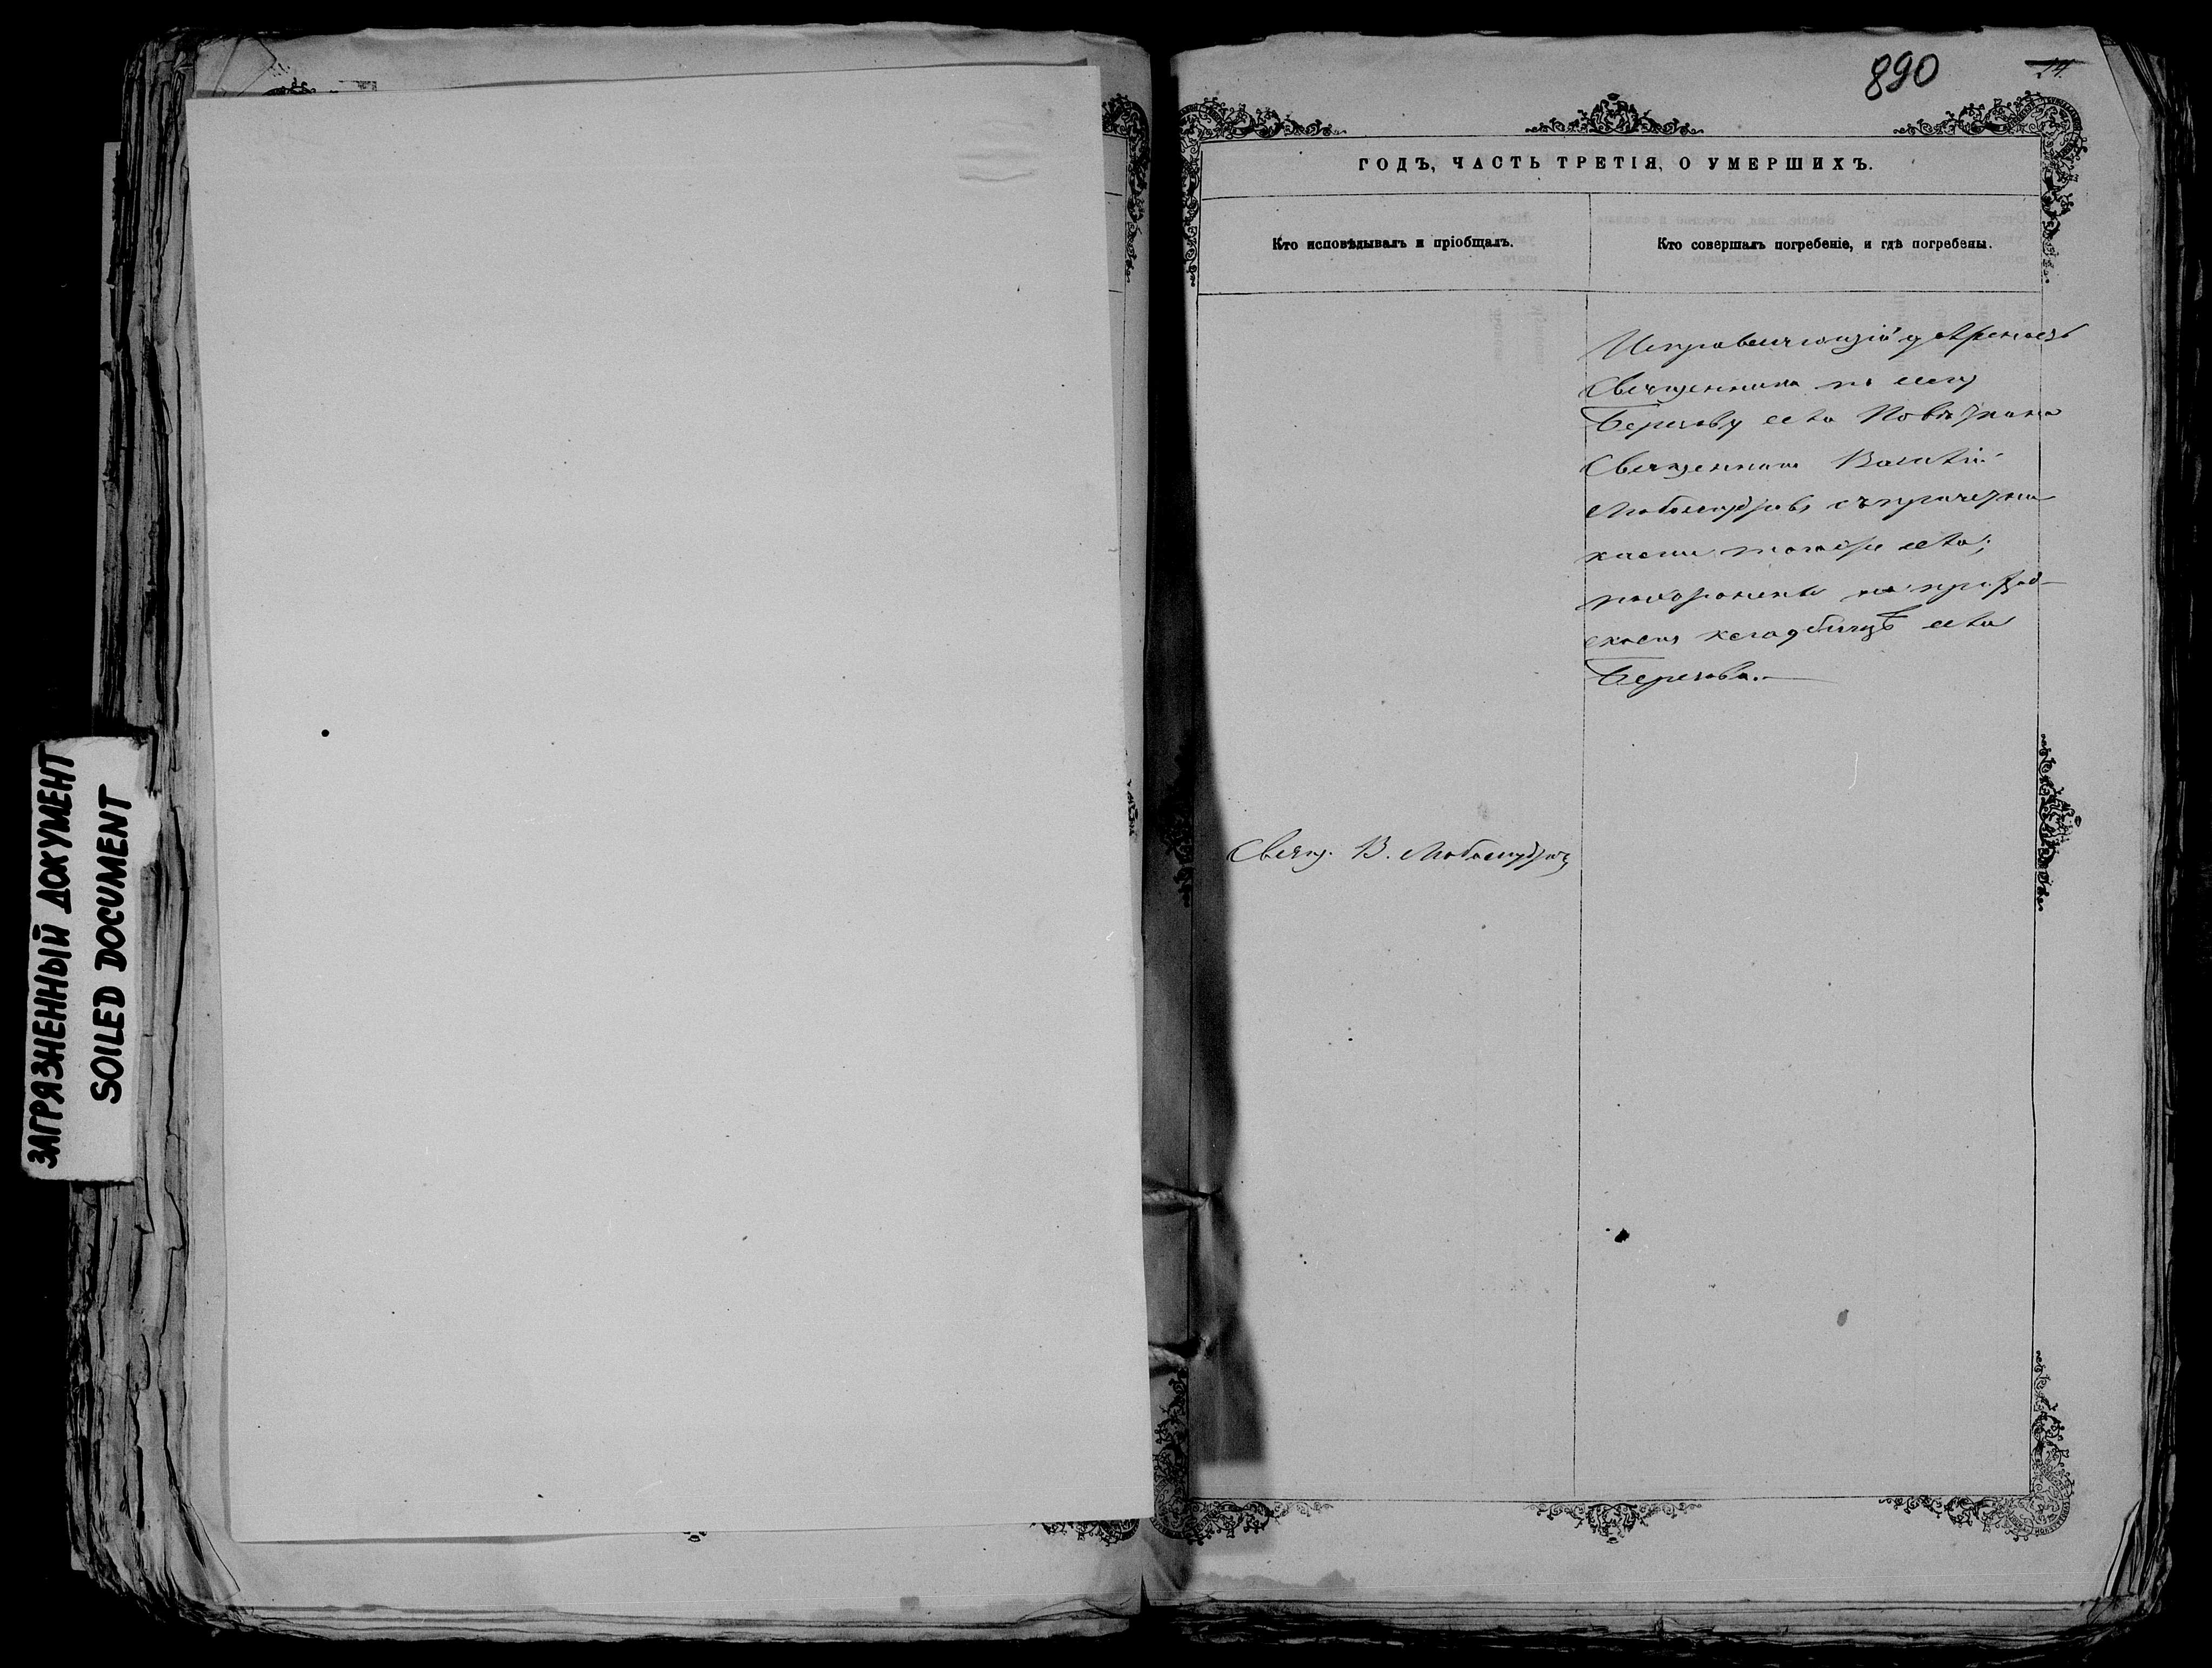 ЗАГРЯЗНЕННЫЙ ДОКУМЕНТ
SOILED DOCUMENT
890
24.
ГОДЪ, ЧАСТЬ ТРЕТІЯ, О УМЕРШИХЪ.
Кто исповѣдывалъ и пріобщалъ.
Кто совершалъ погребеніе, и гдѣ погребены.
Исправляющій должность
Священника по селу
Березову села
Священникъ Василій
Любомудровъ съ причетни
ками того же села;
похоронены на приход-
скомъ кладбищѣ села
Березова.
Свящ. В. Любомудровъ